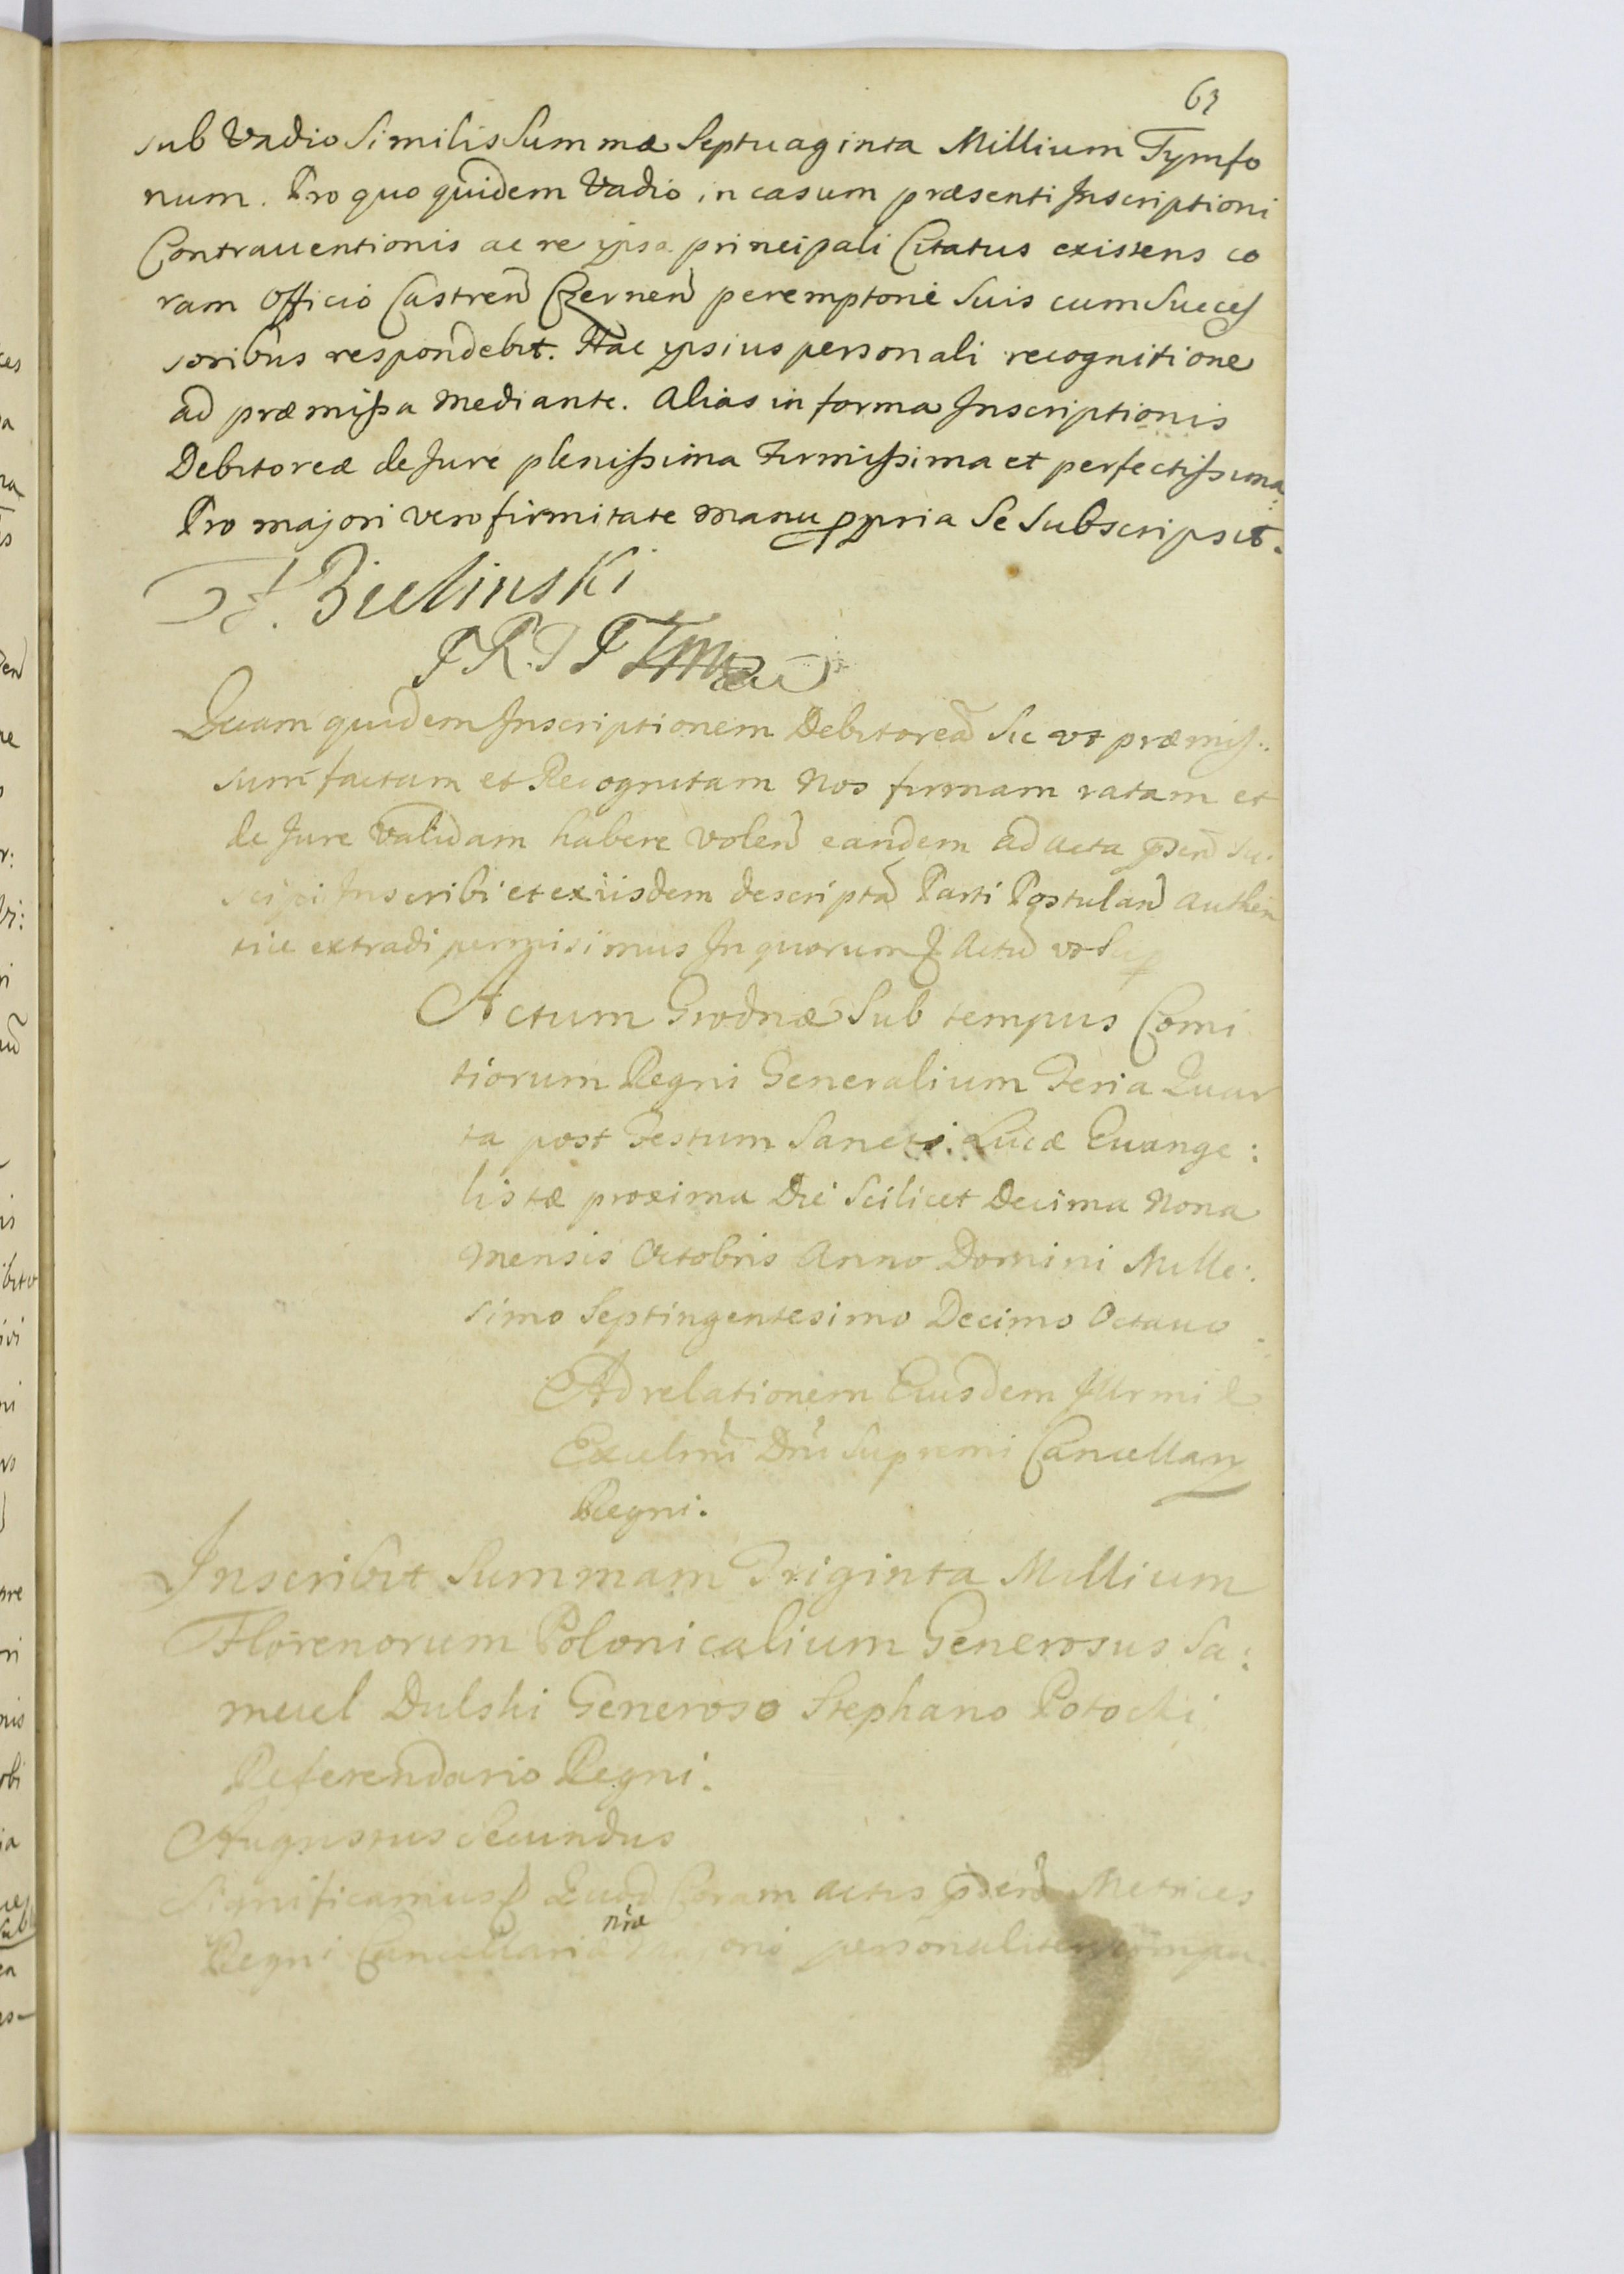 63
sub Vadio Similis Summæ Septuaginta Millium Tymfo
num. Pro quo quidem Vadio in casum præsenti Inscriptioni
Contrauentionis ac re ipsa principali Citatus existens co
ram Officio Castren Czernen peremptorie Suis cum Succes
soribus respondebit. Hac ipsius personali recognitione
ad præmissa mediante. Alias in forma Inscriptionis
Debitoreæ de Jure plenissima Firmissima et perfectissima
Pro majori vero firmitate manu ppria Se Subscripsit.
Bielinski
Quam quidem Inscriptionem Debitoreã Sic vt præmis:
sum factam et Recognitam Nos firmam ratam et
de Jure Validam habere volen eandem ad acta pñen Su:
scipi Inscribi et ex iisdem descriptã Parti Postulan Authen
tice extradi permisimus In quorum Actũ vt Sup
Actum Grodnæ Sub tempus Comi
tiorum Regni Generalium Feria Quar
ta post Festum Sancti Lucæ Euange:
listæ proxima Die Scilicet Decima Nona
Mensis Octobris Anno Domini Mille:
simo Septingentesimo Decimo Octauo
Ad relationem Eiusdem Illrmi &
Excelmi Dni Supremi Cancellarij
Regni.
Inscribit Summam Triginta Millium
Florenorum Polonicalium Generosus Sa:
muel Dulski Generoso Stephano Potocki
Referendario Regni.
Augustus Secundus
Significamus Quod Coram actis pñen Metrices
Regni Cancellariæ nræ Majoris personaliter compa